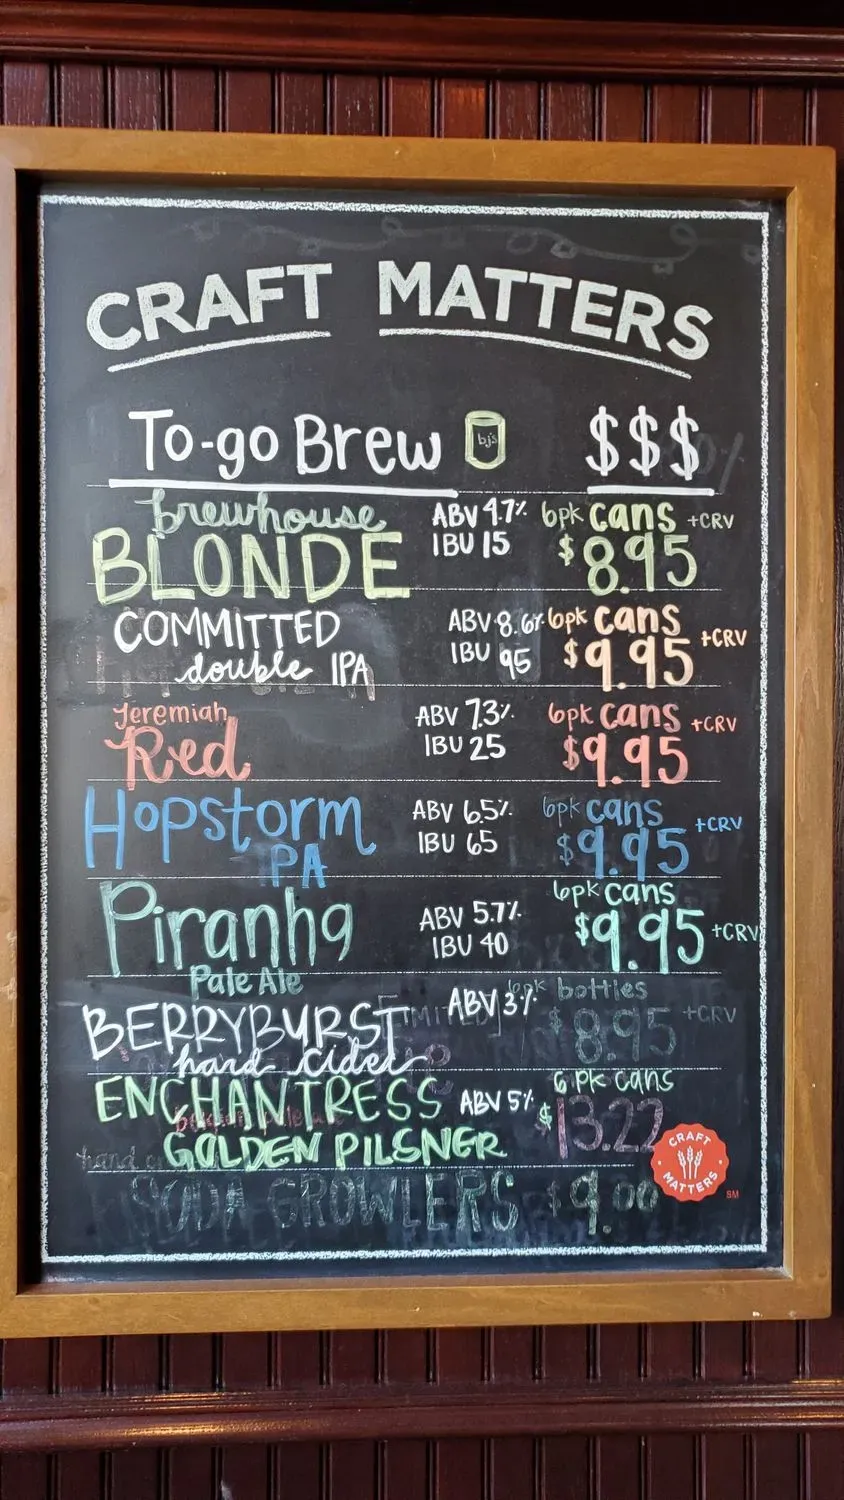 CRAFT MATTERS
To-go Brew bj's $$$
brewhouse ABV 4.7% 6pk cans +CRV
BLONDE IBU 15 $8.95
COMMITTED ABV 8.6% 6pk cans +CRV
double IPA IBU 95 $9.95
Jeremiah ABV 7.3% 6pk cans +CRV
Red IBU 25 $9.95
Hopstorm ABV 6.5% 6pk cans +CRV
IPA IBU 65 $9.95
Piranha ABV 5.7% 6pk cans
Pale Ale IBU 40 $9.95 +CRV
BERRYBURST ABV 3% 6pk bottles
hard cider $8.95 +CRV
ENCHANTRESS ABV 5% 6 pk cans
GOLDEN PILSNER $13.22
SODA GROWLERS $9.00
CRAFT MATTERS SM